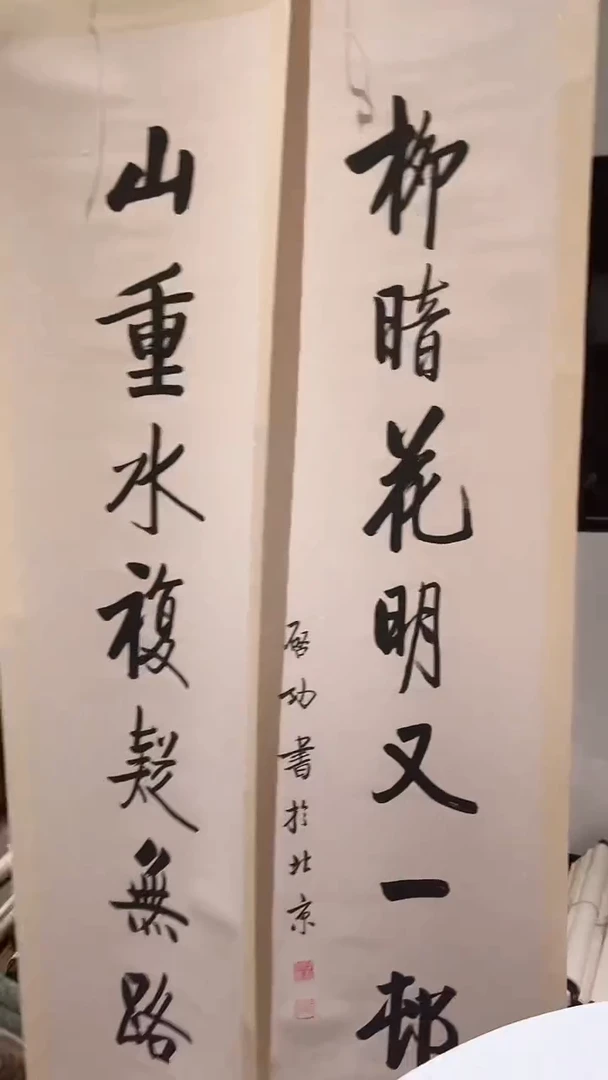 山重水複疑無路
柳暗花明又一邨
启功書於北京